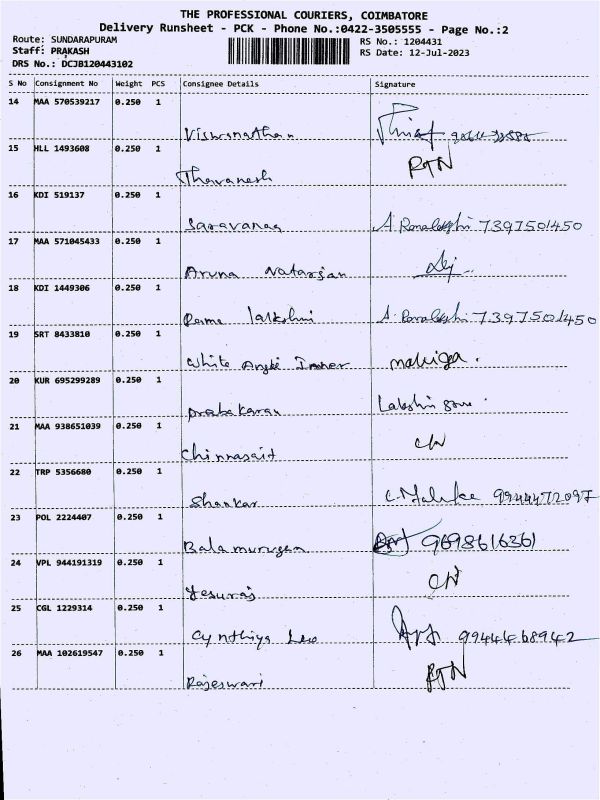 THE PROFESSIONAL COURIERS, COIMBATORE
Delivery Runsheet - PCK - Phone No.:0422-3505555 - Page No.:2
Route: SUNDARAPURAM RS No.: 1204431
Staff: PRAKASH RS Date: 12-Jul-2023
DRS No.: DCJB120443102
S No Consignment No Weight PCS Consignee Details Signature
14 MAA 570539217 0.250 1
Viswanathan
15 HLL 1493608 0.250 1 RTN
Thavanesh
16 KDI 519137 0.250 1
Saravanaa 7397501450
17 MAA 571045433 0.250 1
Aruna Natarajan
18 KDI 1449306 0.250 1
Rama lakshmi 7397501450
19 SRT 8433810 0.250 1
White Inner
20 KUR 695299289 0.250 1
prabakaran
21 MAA 938651039 0.250 1
Chinnasait
22 TRP 5356680 0.250 1
Shankar 9944472097
23 POL 2224407 0.250 1
Balamurugan 9698616361
24 VPL 944191319 0.250 1
Yesuraj
25 CGL 1229314 0.250 1
Cynthiya Leo 9944468942
26 MAA 102619547 0.250 1 RTN
Rajeswari